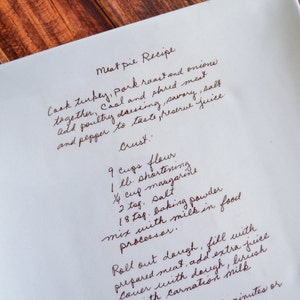 Meat pie Recipe
Cook turkey, pork roast and onions
together, Cool and shred meat
add poultry dressing, savory, salt
and pepper to taste, reserve juice
Crust:
9 cups flour
1 lb. shortening
¼ cup margarine
2 tsp. salt
18 tsp. baking powder
mix with milk in food
processor.
Roll out dough, fill with
prepared meat, add extra juice
cover with dough, brush
with carnation milk
minutes or